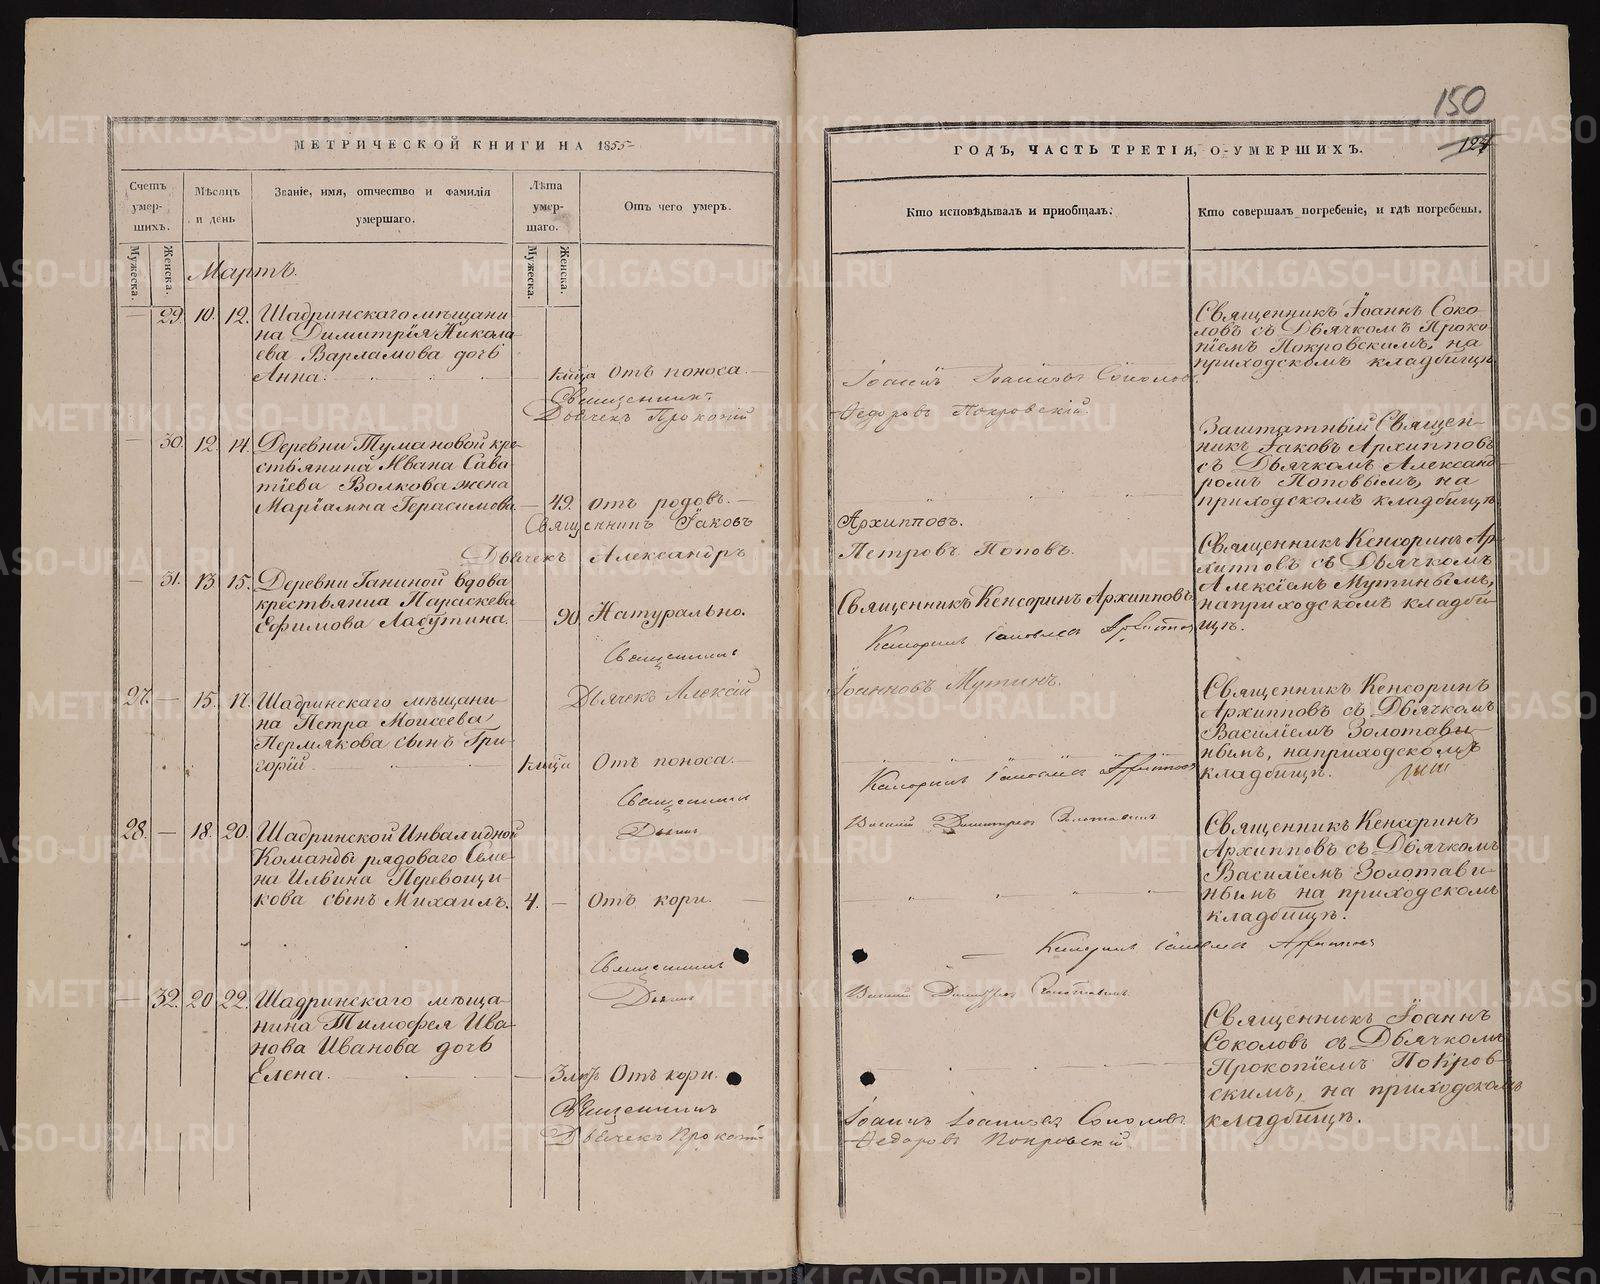 150
124
МЕТРИЧЕСКОЙ КНИГИ НА 1855
ГОДЪ, ЧАСТЬ ТРЕТІЯ, О УМЕРШИХЪ.
Счетъ умер-шихъ.
Мѣсяцъ и день
Званіе, имя, отчество и фамилія умершаго.
Лѣта умер-шаго.
Отъ чего умеръ.
Кто исповѣдывалъ и пріобщалъ.
Кто совершалъ погребеніе, и гдѣ погребены.
Мужеска.
Женска.
Мужеска.
Женска.
Мартъ.
29. 10. 12. Шадринскаго мѣщани
на Димитрія Никола
ева Варламова дочь
Анна. Отъ поноса.
Священникъ Іоаннъ Соко-
ловъ съ Дьячкомъ Проко-
піемъ Покровскимъ, на
приходскомъ кладбищѣ.
Священникъ Іоаннъ Іоанновъ Соколовъ
Дьячекъ Прокопій Ѳедоровъ Покровскій.
30. 12. 14. Деревни Тумановой кре-
стьянина Ивана Сава
тіева Волкова жена
Маріамна Герасимова. 49. Отъ родовъ.
Заштатный Священ-
никъ Іаковъ Архипповъ
съ Дьячкомъ Александ-
ромъ Поповымъ, на
приходскомъ кладбищѣ.
Священникъ Іаковъ Архипповъ.
Дьячекъ Александръ Петровъ Поповъ.
31. 13. 15. Деревни Ганиной вдова
крестьянка Параскева
Ефимова Лабутина. 90. Натурально.
Священникъ Кенсоринъ Архипповъ
Священникъ Кенсоринъ Ар-
хипповъ съ Дьячкомъ
Алексіемъ Мутинымъ,
на приходскомъ кладби-
щѣ.
Священникъ Кенсоринъ Іаковлевъ Архипповъ
Дьячекъ Алексій Іоанновъ Мутинъ.
27. 15. 17. Шадринскаго мѣщани-
на Петра Моисеева
Пермякова сынъ Гри-
горій. Отъ поноса.
Священникъ Кенсоринъ
Архипповъ съ Дьячкомъ
Василіемъ Золотавы-
нымъ, на приходскомъ
кладбищѣ.
Священникъ Кенсоринъ Іаковлевъ Архипповъ
Дьячекъ Василій Димитріевъ Золотавинъ
28. 18. 20. Шадринской Инвалидной
Команды рядоваго Семе-
на Ильина Перевощи-
кова сынъ Михаилъ. 4. Отъ кори.
Священникъ Кенсоринъ
Архипповъ съ Дьячкомъ
Василіемъ Золотави-
нымъ на приходскомъ
кладбищѣ.
Священникъ Кенсоринъ Іаковлевъ Архипповъ
Дьячекъ Василій Димитріевъ Золотавинъ.
32. 20. 22. Шадринскаго мѣща-
нина Тимофея Ива
нова Иванова дочь
Елена. Отъ кори.
Священникъ Іоаннъ
Соколовъ съ Дьячкомъ
Прокопіемъ Покров-
скимъ, на приходскомъ
кладбищѣ.
Священникъ Іоаннъ Іоанновъ Соколовъ
Дьячекъ Прокопій Ѳедоровъ Покровскій
METRIKI.GASO-URAL.RU